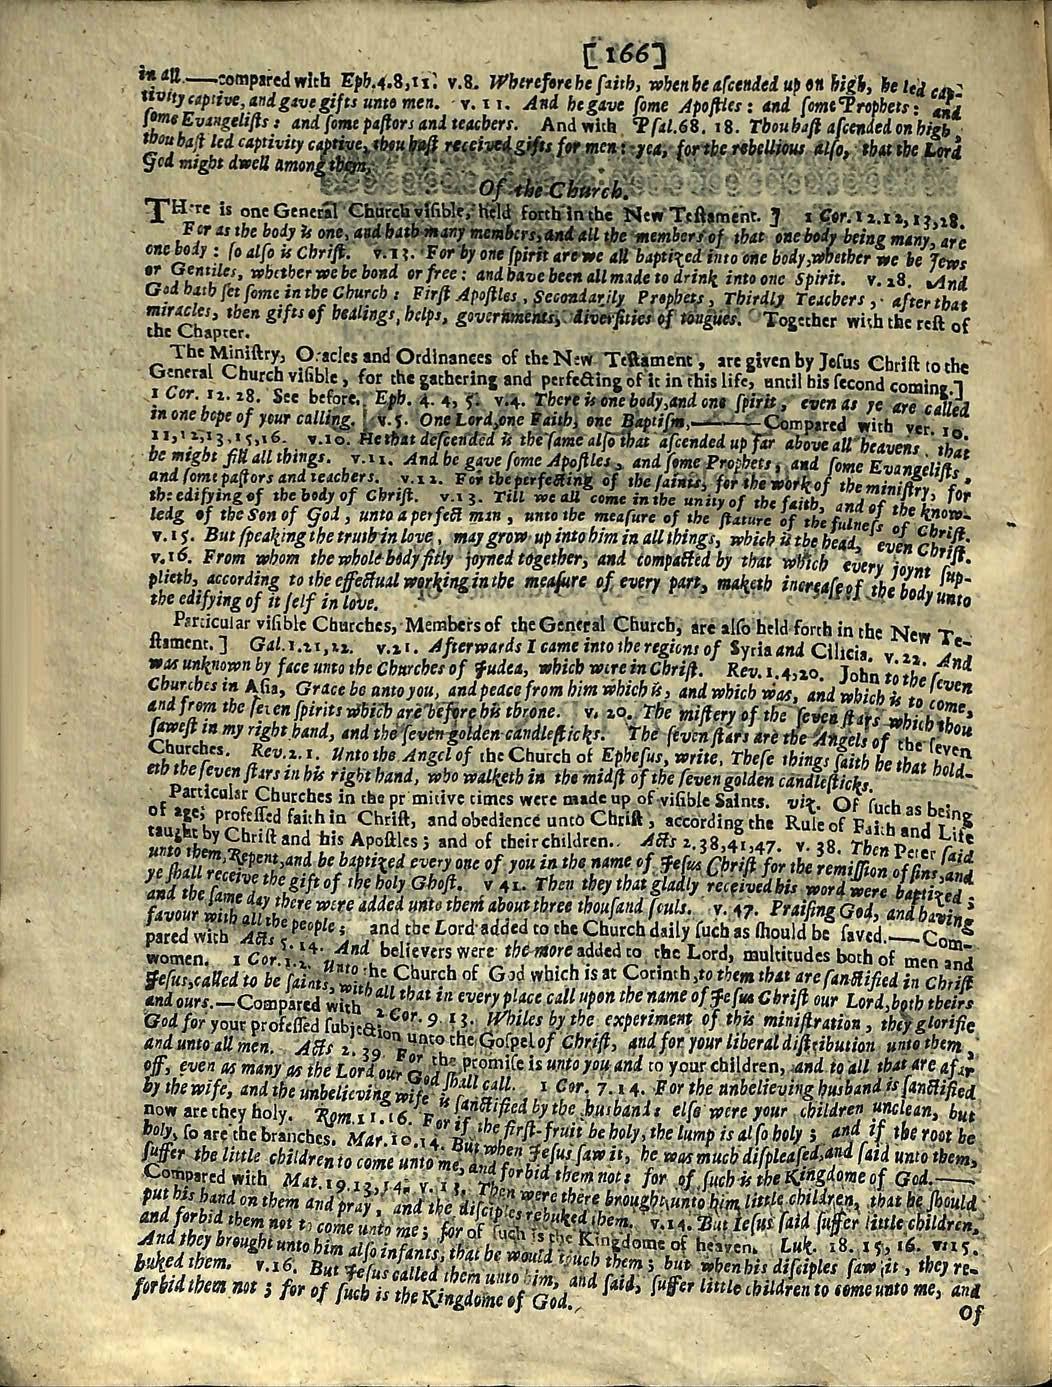 [166]
in all.——compared with Eph.4.8,11. v.8. Wherefore he ſaith, when he aſcended up on high, he led cap-
tivity captive, and gave gifts unto men. v. 11. And he gave ſome Apoſtles: and ſome Prophets: and
ſome Evangeliſts: and ſome paſtors and teachers. And with Pſal.68. 18. Thou haſt aſcended on high,
thou haſt led captivity captive, thou haſt received gifts for men: yea, for the rebellious alſo, that the Lord
God might dwell among them.
Of the Church.
THere is one General Church viſible, held forth in the New Teſtament. ] 1 Cor.12.12,13,28.
For as the body is one, and hath many members, and all the members of that one body being many, are
one body: ſo alſo is Chriſt. v.13. For by one ſpirit are we all baptized into one body, whether we be Jews
or Gentiles, whether we be bond or free: and have been all made to drink into one Spirit. v.28. And
God hath ſet ſome in the Church: Firſt Apoſtles, Secondarily Prophets, Thirdly Teachers, after that
miracles, then gifts of healings, helps, governments, diverſities of tongues. Together with the reſt of
the Chapter.
The Miniſtry, Oracles and Ordinances of the New Teſtament, are given by Jeſus Chriſt to the
General Church viſible, for the gathering and perfecting of it in this life, until his ſecond coming.]
1 Cor. 12.28. See before. Eph. 4. 4, 5. v.4. There is one body, and one ſpirit, even as ye are called
in one hope of your calling. v.5. One Lord, one Faith, one Baptiſm,———Compared with ver. 10.
11,12,13,15,16. v.10. He that deſcended is the ſame alſo that aſcended up far above all heavens, that
he might fill all things. v.11. And he gave ſome Apoſtles, and ſome Prophets, and ſome Evangeliſts,
and ſome paſtors and teachers. v.12. For the perfecting of the ſaints, for the work of the miniſtry, for
the edifying of the body of Chriſt. v.13. Till we all come in the unity of the faith, and of the know-
ledg of the Son of God, unto a perfect man, unto the meaſure of the ſtature of the fulneſs of Chriſt.
v.15. But ſpeaking the truth in love, may grow up into him in all things, which is the head, even Chriſt.
v.16. From whom the whole body fitly joyned together, and compacted by that which every joynt ſup-
plieth, according to the effectual working in the meaſure of every part, maketh increaſe of the body unto
the edifying of it ſelf in love.
Particular viſible Churches, Members of the General Church, are alſo held forth in the New Te-
ſtament. ] Gal.1.21,22. v.21. Afterwards I came into the regions of Syria and Cilicia. v.22. And
was unknown by face unto the Churches of Judea, which were in Chriſt. Rev.1.4,20. John to the ſeven
Churches in Aſia, Grace be unto you, and peace from him which is, and which was, and which is to come,
and from the ſeven ſpirits which are before his throne. v. 20. The miſtery of the ſeven ſtars which thou
ſaweſt in my right hand, and the ſeven golden candleſticks. The ſeven ſtars are the Angels of the ſeven
Churches. Rev.2.1. Unto the Angel of the Church of Epheſus, write, Theſe things ſaith he that hold-
eth the ſeven ſtars in his right hand, who walketh in the midſt of the ſeven golden candleſticks.
Particular Churches in the pr mitive times were made up of viſible Saints. viz. Of ſuch as being
of age, profeſſed faith in Chriſt, and obedience unto Chriſt, according the Rule of Faith and Life
taught by Chriſt and his Apoſtles; and of their children. Acts 2.38,41,47. v. 38. Then Peter ſaid
unto them, Repent, and be baptized every one of you in the name of Jeſus Chriſt for the remiſſion of ſins, and
ye ſhall receive the gift of the holy Ghoſt. v 41. Then they that gladly received his word were baptized;
and the ſame day there were added unto them about three thouſand ſouls. v.47. Praiſing God, and having
favour with all the people; and the Lord added to the Church daily ſuch as ſhould be ſaved.——Com-
pared with Acts 5.14. And believers were the more added to the Lord, multitudes both of men and
women. 1 Cor.1.2. Unto the Church of God which is at Corinth, to them that are ſanctified in Chriſt
Jeſus, called to be ſaints, with all that in every place call upon the name of Jeſus Chriſt our Lord, both theirs
and ours.—Compared with 2 Cor. 9 13. Whiles by the experiment of this miniſtration, they glorifie
God for your profeſſed ſubjection unto the Goſpel of Chriſt, and for your liberal diſtribution unto them,
and unto all men. Acts 2. 39 For the promiſe is unto you and to your children, and to all that are afar
off, even as many as the Lord our God ſhall call. 1 Cor. 7.14. For the unbelieving husband is ſanctified
by the wife, and the unbelieving wife is ſanctified by the husband: elſe were your children unclean, but
now are they holy. Rom.11.16. For if the firſt-fruit be holy, the lump is alſo holy; and if the root be
holy, ſo are the branches. Mar.10.14. But when Jeſus ſaw it, he was much diſpleaſed, and ſaid unto them,
ſuffer the little children to come unto me, and forbid them not: for of ſuch is the Kingdome of God.——
Compared with Mat.19.13,14. v.13. Then were there brought unto him little children, that he ſhould
put his hand on them and pray, and the diſciples rebuked them. v.14. But Ieſus ſaid ſuffer little children,
and forbid them not to come unto me; for of ſuch is the Kingdome of heaven. Luk. 18. 15, 16. v.15.
And they brought unto him alſo infants, that he would touch them; but when his diſciples ſaw it, they re-
buked them. v.16. But Jeſus called them unto him, and ſaid, ſuffer little children to come unto me, and
forbid them not; for of ſuch is the Kingdome of God.
Of